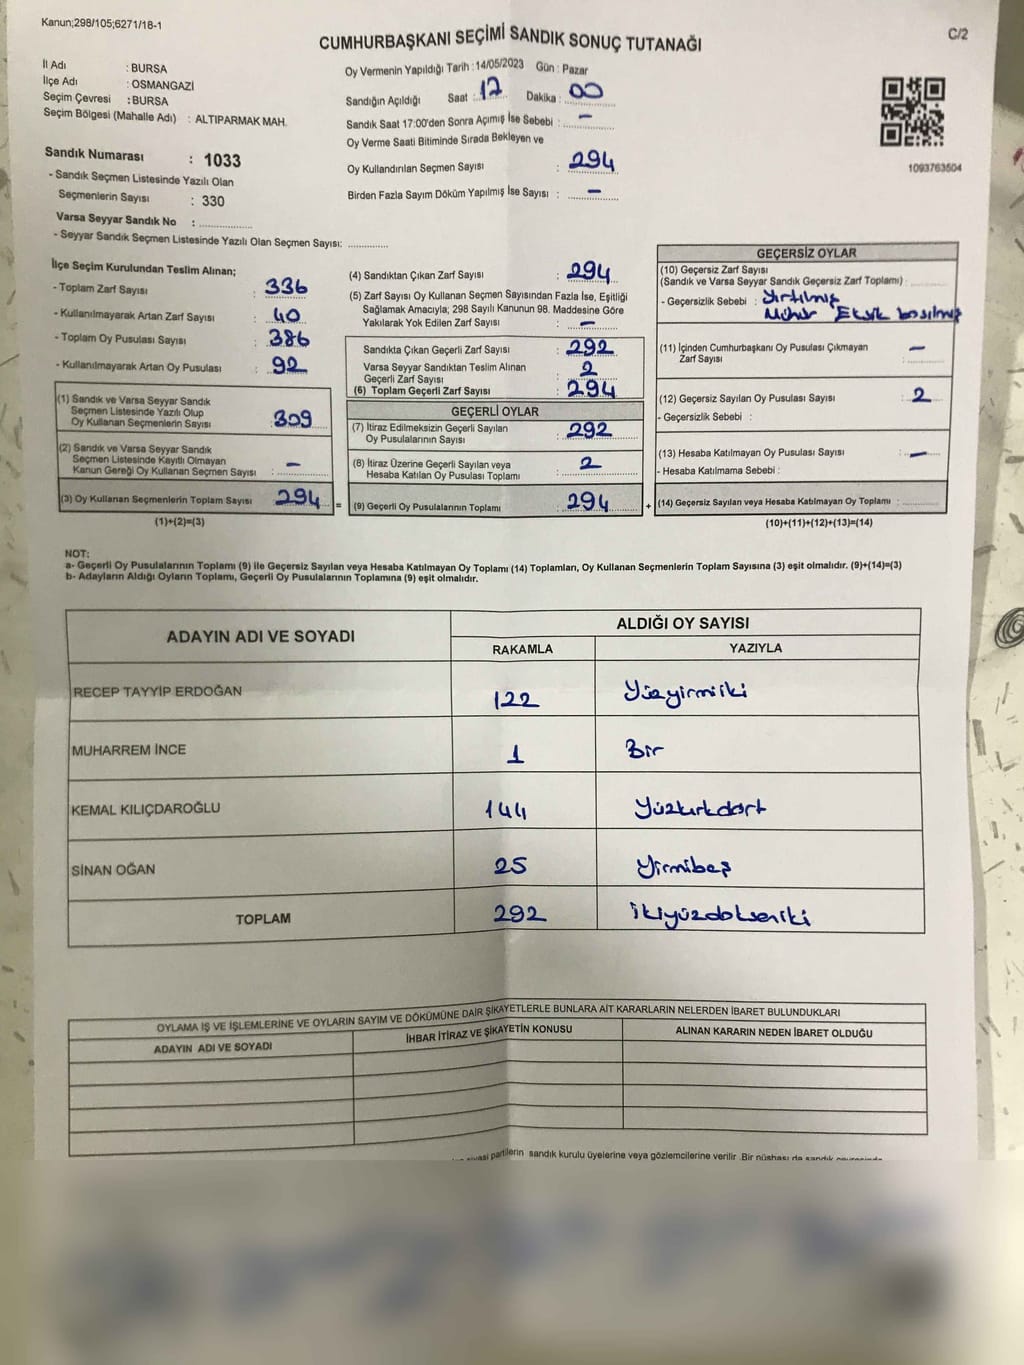 Kanun;298/105;6271/18-1
C/2
CUMHURBAŞKANI SEÇİMİ SANDIK SONUÇ TUTANAĞI
İl Adı : BURSA
İlçe Adı : OSMANGAZİ
Seçim Çevresi : BURSA
Seçim Bölgesi (Mahalle Adı) : ALTIPARMAK MAH.
Sandık Numarası : 1033
- Sandık Seçmen Listesinde Yazılı Olan
Seçmenlerin Sayısı : 330
Varsa Seyyar Sandık No :
- Seyyar Sandık Seçmen Listesinde Yazılı Olan Seçmen Sayısı:
Oy Vermenin Yapıldığı Tarih : 14/05/2023 Gün : Pazar
Sandığın Açıldığı Saat : 17 Dakika : 00
Sandık Saat 17:00'den Sonra Açımış İse Sebebi : -
Oy Verme Saati Bitiminde Sırada Bekleyen ve
Oy Kullandırılan Seçmen Sayısı : 294
Birden Fazla Sayım Döküm Yapılmış İse Sayısı : -
1093763504
İlçe Seçim Kurulundan Teslim Alınan;
- Toplam Zarf Sayısı : 336
- Kullanılmayarak Artan Zarf Sayısı : 40
- Toplam Oy Pusulası Sayısı : 386
- Kullanılmayarak Artan Oy Pusulası : 92
(1) Sandık ve Varsa Seyyar Sandık
Seçmen Listesinde Yazılı Olup
Oy Kullanan Seçmenlerin Sayısı : 309
(2) Sandık ve Varsa Seyyar Sandık
Seçmen Listesinde Kayıtlı Olmayan
Kanun Gereği Oy Kullanan Seçmen Sayısı : -
(3) Oy Kullanan Seçmenlerin Toplam Sayısı 294 =
(1)+(2)=(3)
(4) Sandıktan Çıkan Zarf Sayısı : 294
(5) Zarf Sayısı Oy Kullanan Seçmen Sayısından Fazla İse, Eşitliği
Sağlamak Amacıyla; 298 Sayılı Kanunun 98. Maddesine Göre
Yakılarak Yok Edilen Zarf Sayısı : -
Sandıkta Çıkan Geçerli Zarf Sayısı : 292
Varsa Seyyar Sandıktan Teslim Alınan
Geçerli Zarf Sayısı : 2
(6) Toplam Geçerli Zarf Sayısı : 294
GEÇERLİ OYLAR
(7) İtiraz Edilmeksizin Geçerli Sayılan
Oy Pusulalarının Sayısı : 292
(8) İtiraz Üzerine Geçerli Sayılan veya
Hesaba Katılan Oy Pusulası Toplamı : 2
(9) Geçerli Oy Pusulalarının Toplamı : 294 +
GEÇERSİZ OYLAR
(10) Geçersiz Zarf Sayısı
(Sandık ve Varsa Seyyar Sandık Geçersiz Zarf Toplamı) :
- Geçersizlik Sebebi : Yırtılmış
Mühür Eksik basılmış
(11) İçinden Cumhurbaşkanı Oy Pusulası Çıkmayan
Zarf Sayısı : -
(12) Geçersiz Sayılan Oy Pusulası Sayısı : 2
- Geçersizlik Sebebi :
(13) Hesaba Katılmayan Oy Pusulası Sayısı : -
- Hesaba Katılmama Sebebi :
(14) Geçersiz Sayılan veya Hesaba Katılmayan Oy Toplamı :
(10)+(11)+(12)+(13)=(14)
NOT:
a- Geçerli Oy Pusulalarının Toplamı (9) ile Geçersiz Sayılan veya Hesaba Katılmayan Oy Toplamı (14) Toplamları, Oy Kullanan Seçmenlerin Toplam Sayısına (3) eşit olmalıdır. (9)+(14)=(3)
b- Adayların Aldığı Oyların Toplamı, Geçerli Oy Pusulalarının Toplamına (9) eşit olmalıdır.
ADAYIN ADI VE SOYADI
ALDIĞI OY SAYISI
RAKAMLA YAZIYLA
RECEP TAYYİP ERDOĞAN 122 Yüzyirmiiki
MUHARREM İNCE 1 Bir
KEMAL KILIÇDAROĞLU 144 Yüzkırkdört
SİNAN OĞAN 25 Yirmibeş
TOPLAM 292 İkiyüzdokseniki
OYLAMA İŞ VE İŞLEMLERİNE VE OYLARIN SAYIM VE DÖKÜMÜNE DAİR ŞİKAYETLERLE BUNLARA AİT KARARLARIN NELERDEN İBARET BULUNDUKLARI
ADAYIN ADI VE SOYADI İHBAR İTİRAZ VE ŞİKAYETİN KONUSU ALINAN KARARIN NEDEN İBARET OLDUĞU
siyasi partilerin sandık kurulu üyelerine veya gözlemcilerine verilir .Bir nüshası da sandık